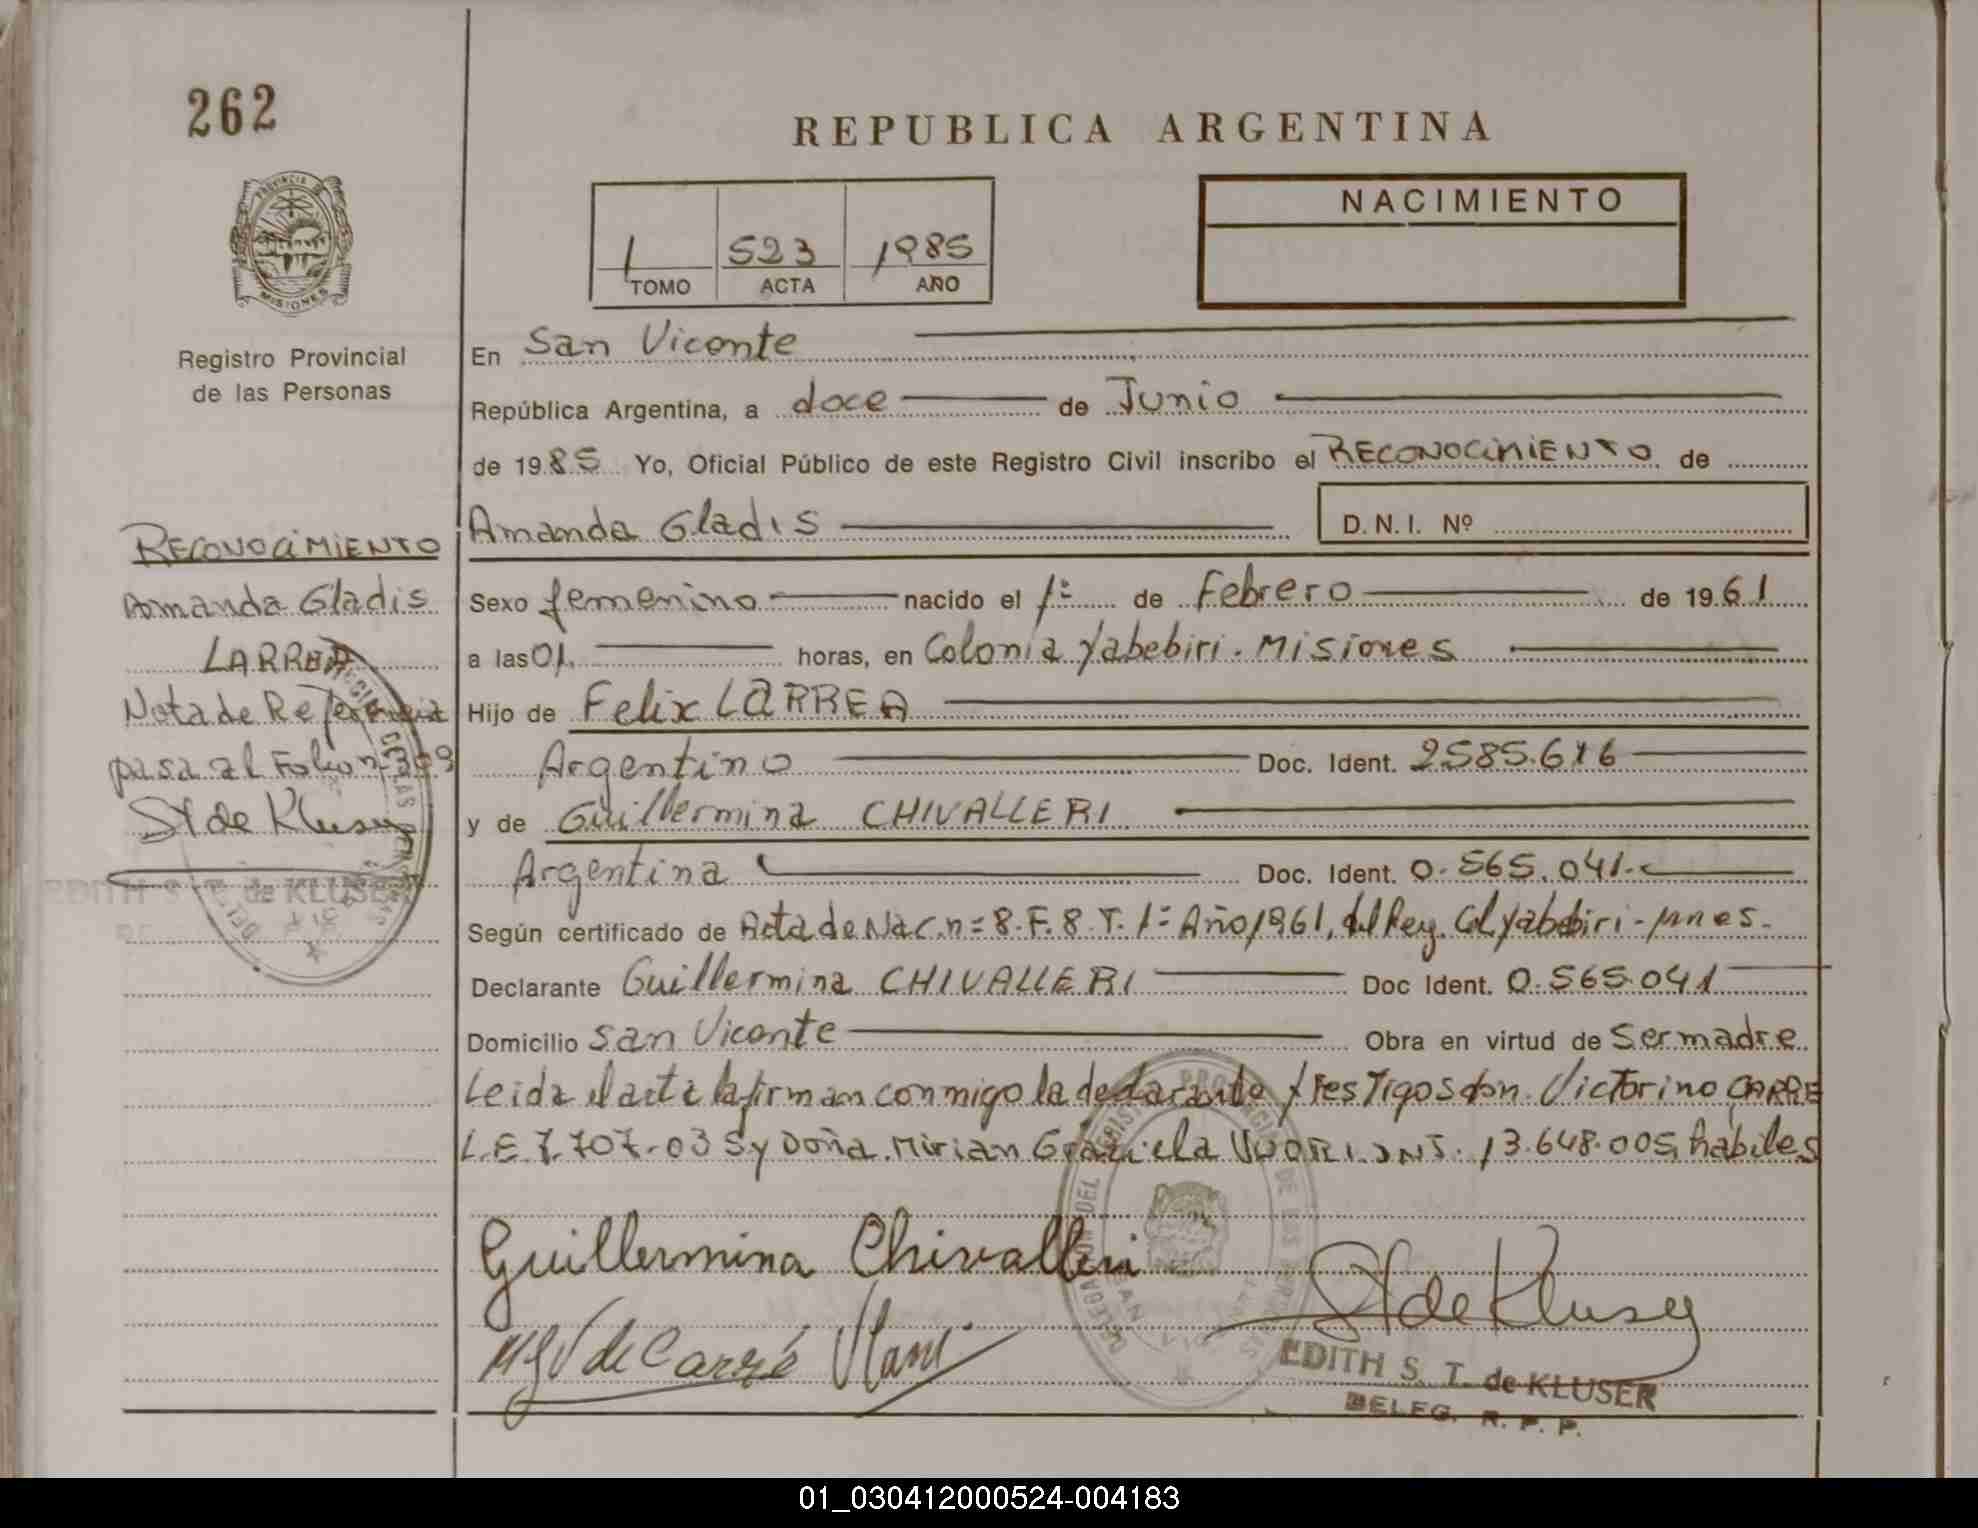 262
REPUBLICA ARGENTINA
PROVINCIA DE
MISIONES
Registro Provincial
de las Personas
1 523 1985
TOMO ACTA AÑO
NACIMIENTO
En San Vicente
República Argentina, a doce de Junio
de 1985 Yo, Oficial Público de este Registro Civil inscribo el RECONOCIMIENTO de
Amanda Gladis D.N.I. Nº
Sexo femenino nacido el 1º de Febrero de 1961
a las 01. horas, en Colonia Yabebiri. Misiones
Hijo de Felix LARREA
Argentino Doc. Ident. 2.585.616
y de Guillermina CHIVALLERI
Argentina Doc. Ident. 0.565.041.
Según certificado de Acta de Nac. n= 8. F. 8. T. 1= Año 1961, del Reg. Col Yabebiri - mnes.
Declarante Guillermina CHIVALLERI Doc Ident. 0.565.041
Domicilio San Vicente Obra en virtud de Ser madre
Leida el acta la firman conmigo la declarante y Testigos don Victorino CARRE
L.E 7.707.035 y Doña Mirian Graciela 13.648.005, hábiles
RECONOCIMIENTO
Amanda Gladis
LARREA
Nota de Referencia
pasa al Folio n
St de Kluser
EDITH S. T. de KLUSER
Guillermina Chivalleri
de Carré
St de Kluser
EDITH S. T. de KLUSER
DELEG. R. P. P.
01_030412000524-004183